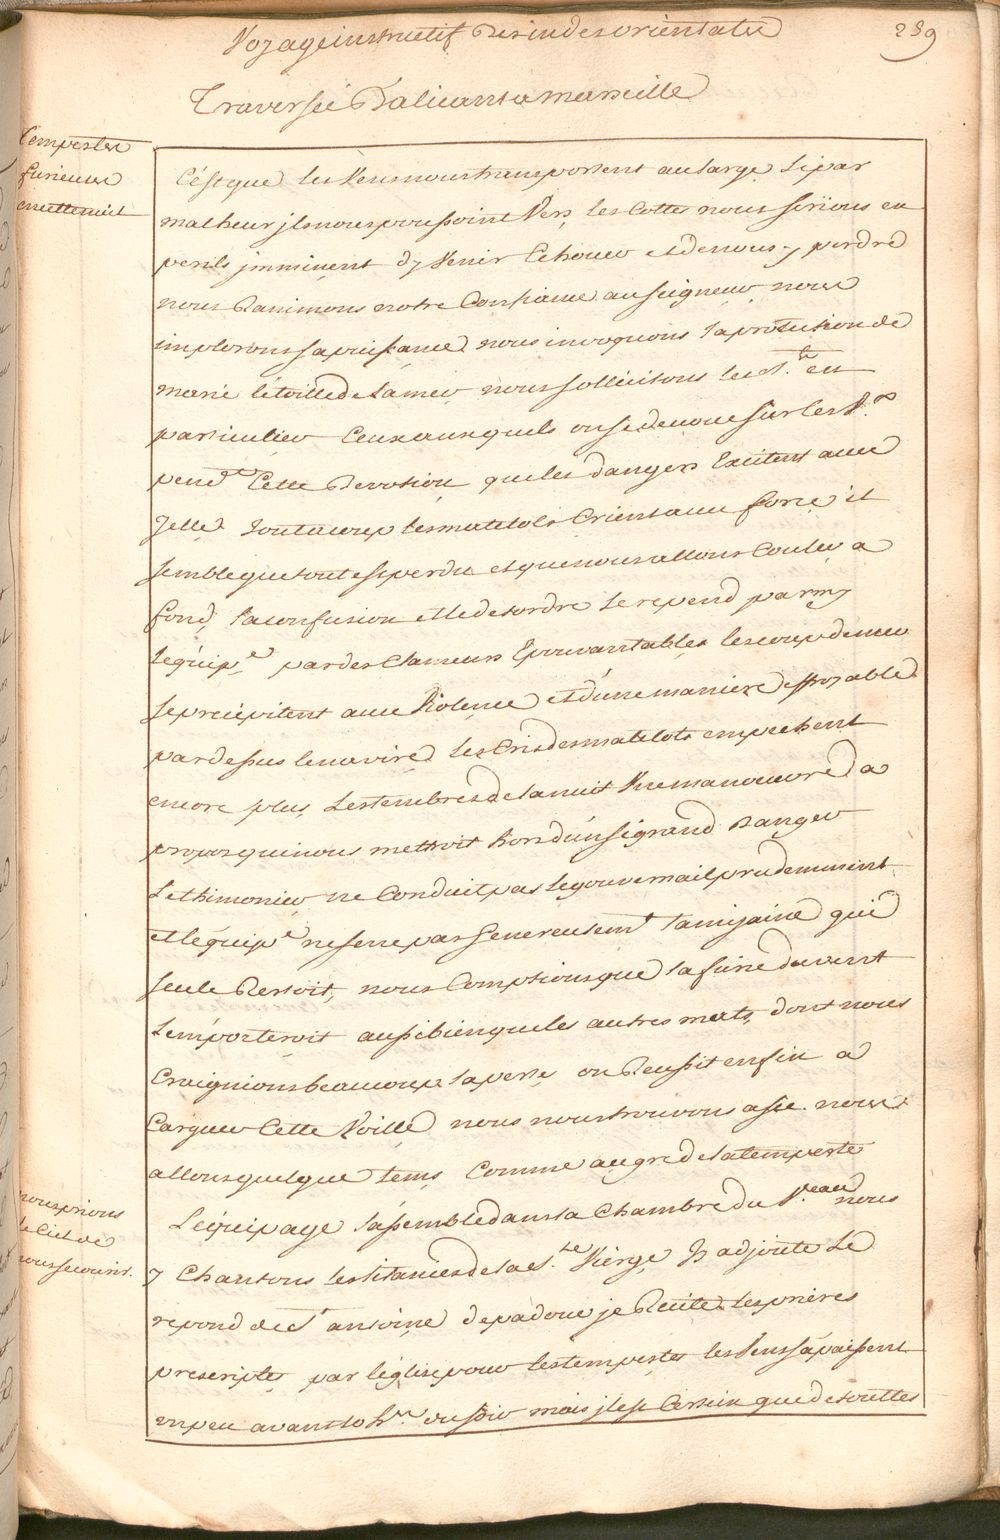 Voyage instructif Des indes orientales
289
Traversée D'alicant a marseille
tempestes
furieuses
cette nuit
C'est que les Vens nous transportent au large si par
malheur ils nous poussoint Vers les Cottes nous serions en
perils imminent d'y Venir Echouer et de nous y perdre
nous Ranimons notre Confiance au seigneur nous
implorons sa puissance nous invoquons la protection de
marie l'étoille de la mer nous sollicitons les Sts en
particulier Ceux auxquels on se devoue sur les
pend.r Cette Devotion que les dangers Excitent avec
Zelle tout a coup les matelots Crient avec force il
semble que tout est perdu et que nous allons Couler a
fond, la confusion et le desordre se repend parmy
l'équip.e par des Clameurs Epouvantables les coups de mer
se precipitent avec Violence et d'une maniere effroyable
par dessus le navire les Cris des matelots empechent
encore plus les tenebres de la nuit Une manoeuvre a
propos qui nous mettroit hors d'un si grand Danger
Le thimonier ne Conduit pas le gouvernail prudemment
et l'équip.e ne serre pas genereusem.t la mizaine qui
seule Restoit, nous Comptions que la furie du vent
l'emporteroit aussi bien que les autres mats, dont nous
Craignions beaucoup la perte on Reussit enfin a
Carguer Cette Voille nous nous trouvons a sec nous
allons quelque tems Comme au gré de la tempeste
nous prions
le Ciel de
nous secourir.
L'équipage s'assemble dans la Chambre du V.eau nous
y Chantons les litanies de la S.te Vierge J'y adjoute le
repond de St antoine de padoue je Recite les prieres
prescriptes par l'église pour les tempestes les Vens s'apaisent
un peu avant 10 h.res du soir mais il est Certain que de toutes